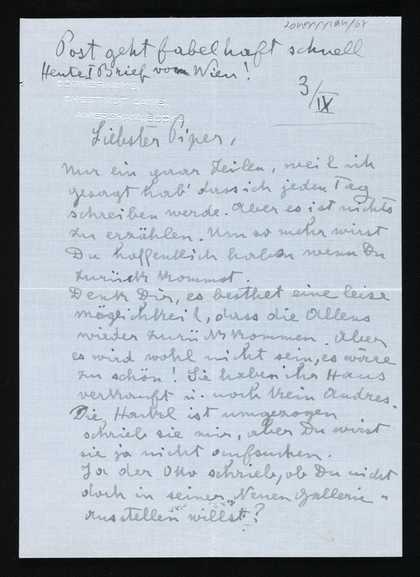 Post geht fabelhaft schnell
Heute 1 Brief von Wien!
3/IX
Liebster Piper,
Nur ein paar Zeilen, weil ich
gesagt hab' dass ich jeden Tag
schreiben werde. Aber es ist nichts
zu erzählen. Um so mehr wirst
Du hoffentlich haben wenn Du
zurück kommst.
Denk Dir, es besthet eine leise
möglichkeit, dass die Allens
wieder zurück kommen. Aber
es wird wohl nicht sein, es wäre
zu schön! Sie haben ihr Haus
verkauft u. noch kein andres.
Die Hansl ist umgezogen
schrieb sie mir, aber Du wirst
sie ja nicht aufsuchen.
Ja der Otto schrieb, ob Du nicht
doch in seiner „Neuen Gallerie"
ausstellen willst?